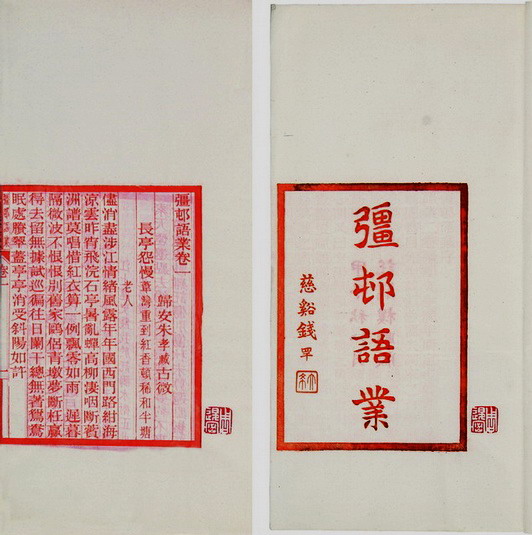 彊邨語業
慈谿錢罕
彊邨語業卷一
歸安朱孝臧古微
長亭怨慢 葦灣重到紅香頓稀和半塘
老人
儘消盡涉江情緒風露年年國西門路紺海
涼雲昨宵飛浣石亭暑亂蟬高柳淒咽斷蘋
洲譜莫唱惜紅衣算一例飄零如雨 遲暮
隔微波不恨恨別舊家鷗侶青墩夢斷枉贏
得去留無據試巡徧往日闌干總無著鴛鴦
眠處賸翠蓋亭亭消受斜陽如許
卷一
一